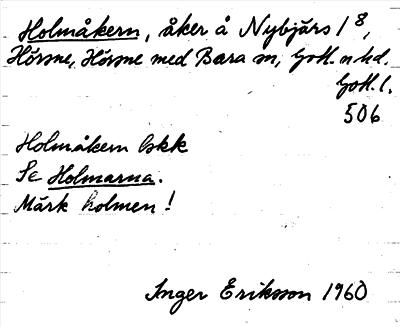 Holmåkern, åker å Nybjärs 1⁸,
Hörsne, Hörsne med Bara sn, Gotl. n hd.
Gotl. l.
506
Holmåkern bkk
Se Holmarna.
Märk holmen!
Inger Eriksson 1960